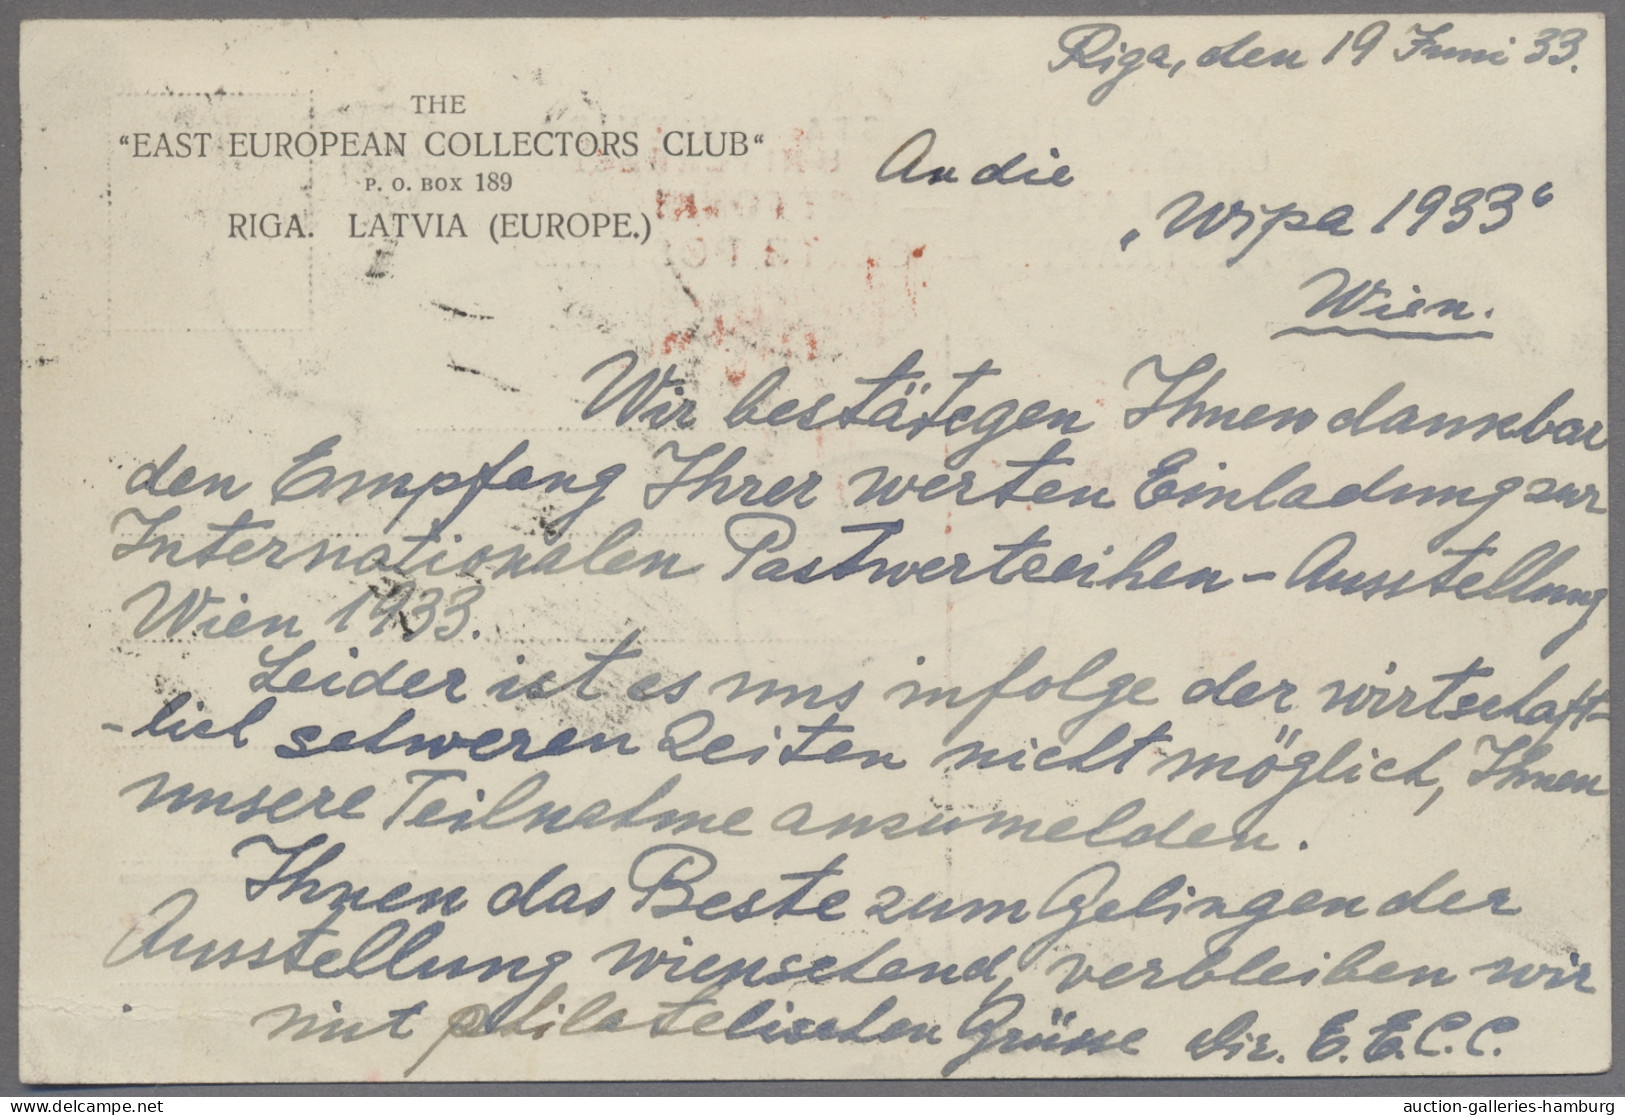 Riga, den 19 Juni 33.
THE
"EAST EUROPEAN COLLECTORS CLUB"
P. O. BOX 189
RIGA. LATVIA (EUROPE.)
An die
„Wipa 1933“
Wien.
Wir bestätigen Ihnen dankbar
den Empfang Ihrer werten Einladung zur
Internationalen Postwertzeihen - Ausstellung
Wien 1933.
Leider ist es uns infolge der wirtschaft-
-lich schweren Zeiten nicht möglich, Ihnen
unsere Teilnahme anzumelden.
Ihnen das Beste zum Gelingen der
Ausstellung wienschend, verbleiben wir
mit philatelischen Grüsse Dir. E.E.C.C.
auction-galleries-hamburg